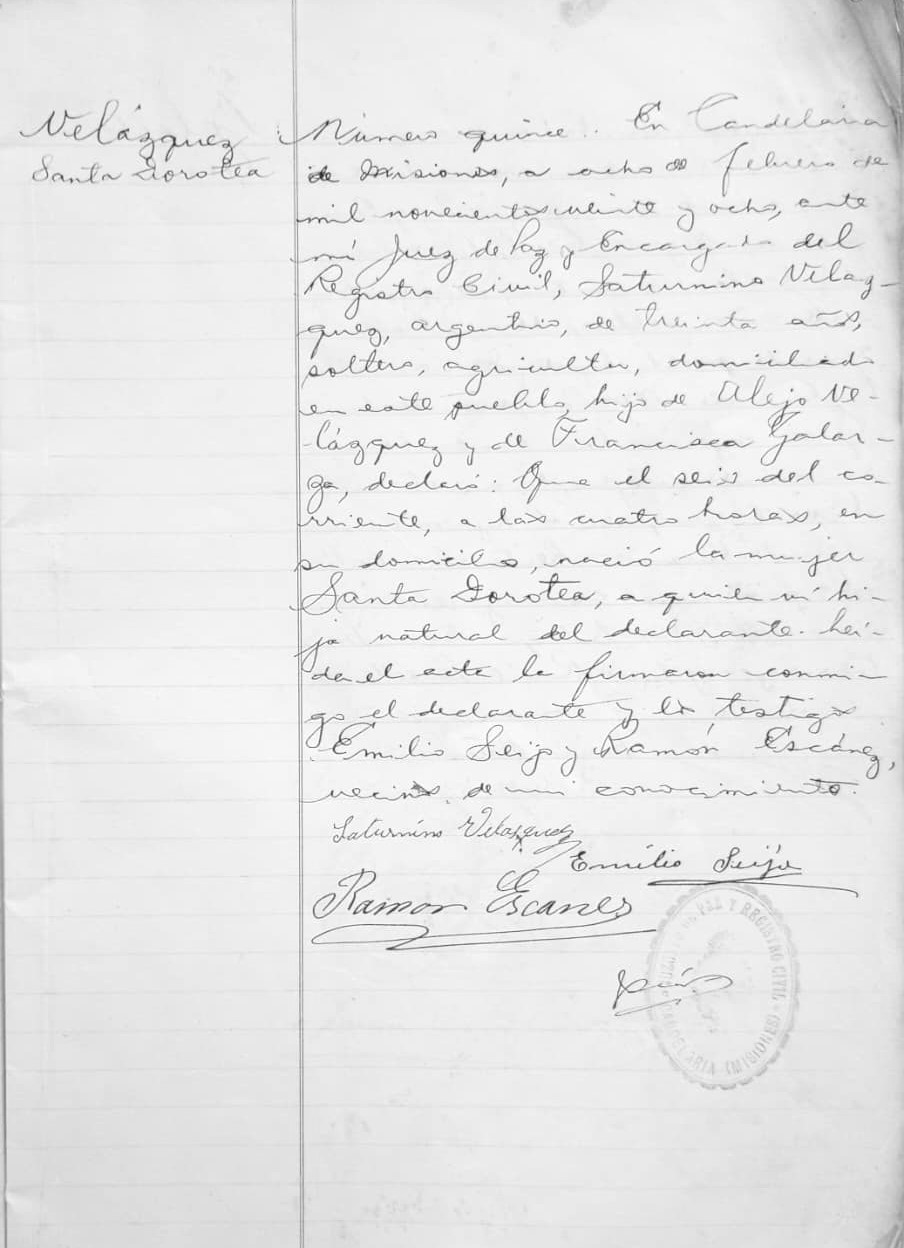 Velázquez
Santa Dorotea
Número quince. En Candelaria
de Misiones, a ocho de febrero de
mil novecientos veinte y ocho, ante
mí Juez de Paz y Encargado del
Registro Civil, Saturnino Veláz-
quez, argentino, de treinta años,
soltero, agricultor, domiciliado
en este pueblo, hijo de Alejo Ve-
lázquez y de Francisca Galar-
za, declaró: Que el seis del co-
rriente, a las cuatro horas, en
su domicilio, nació la mujer
Santa Dorotea, a quien vi hi-
ja natural del declarante. Leí-
da el acta la firmaron conmi-
go el declarante y los testigos
Emilio Seijo y Ramón Escánez,
vecinos de mi conocimiento.
Saturnino Velazquez
Emilio Seijo
Ramon Escanes
JUZGADO DE PAZ Y REGISTRO CIVIL
CANDELARIA (MISIONES)